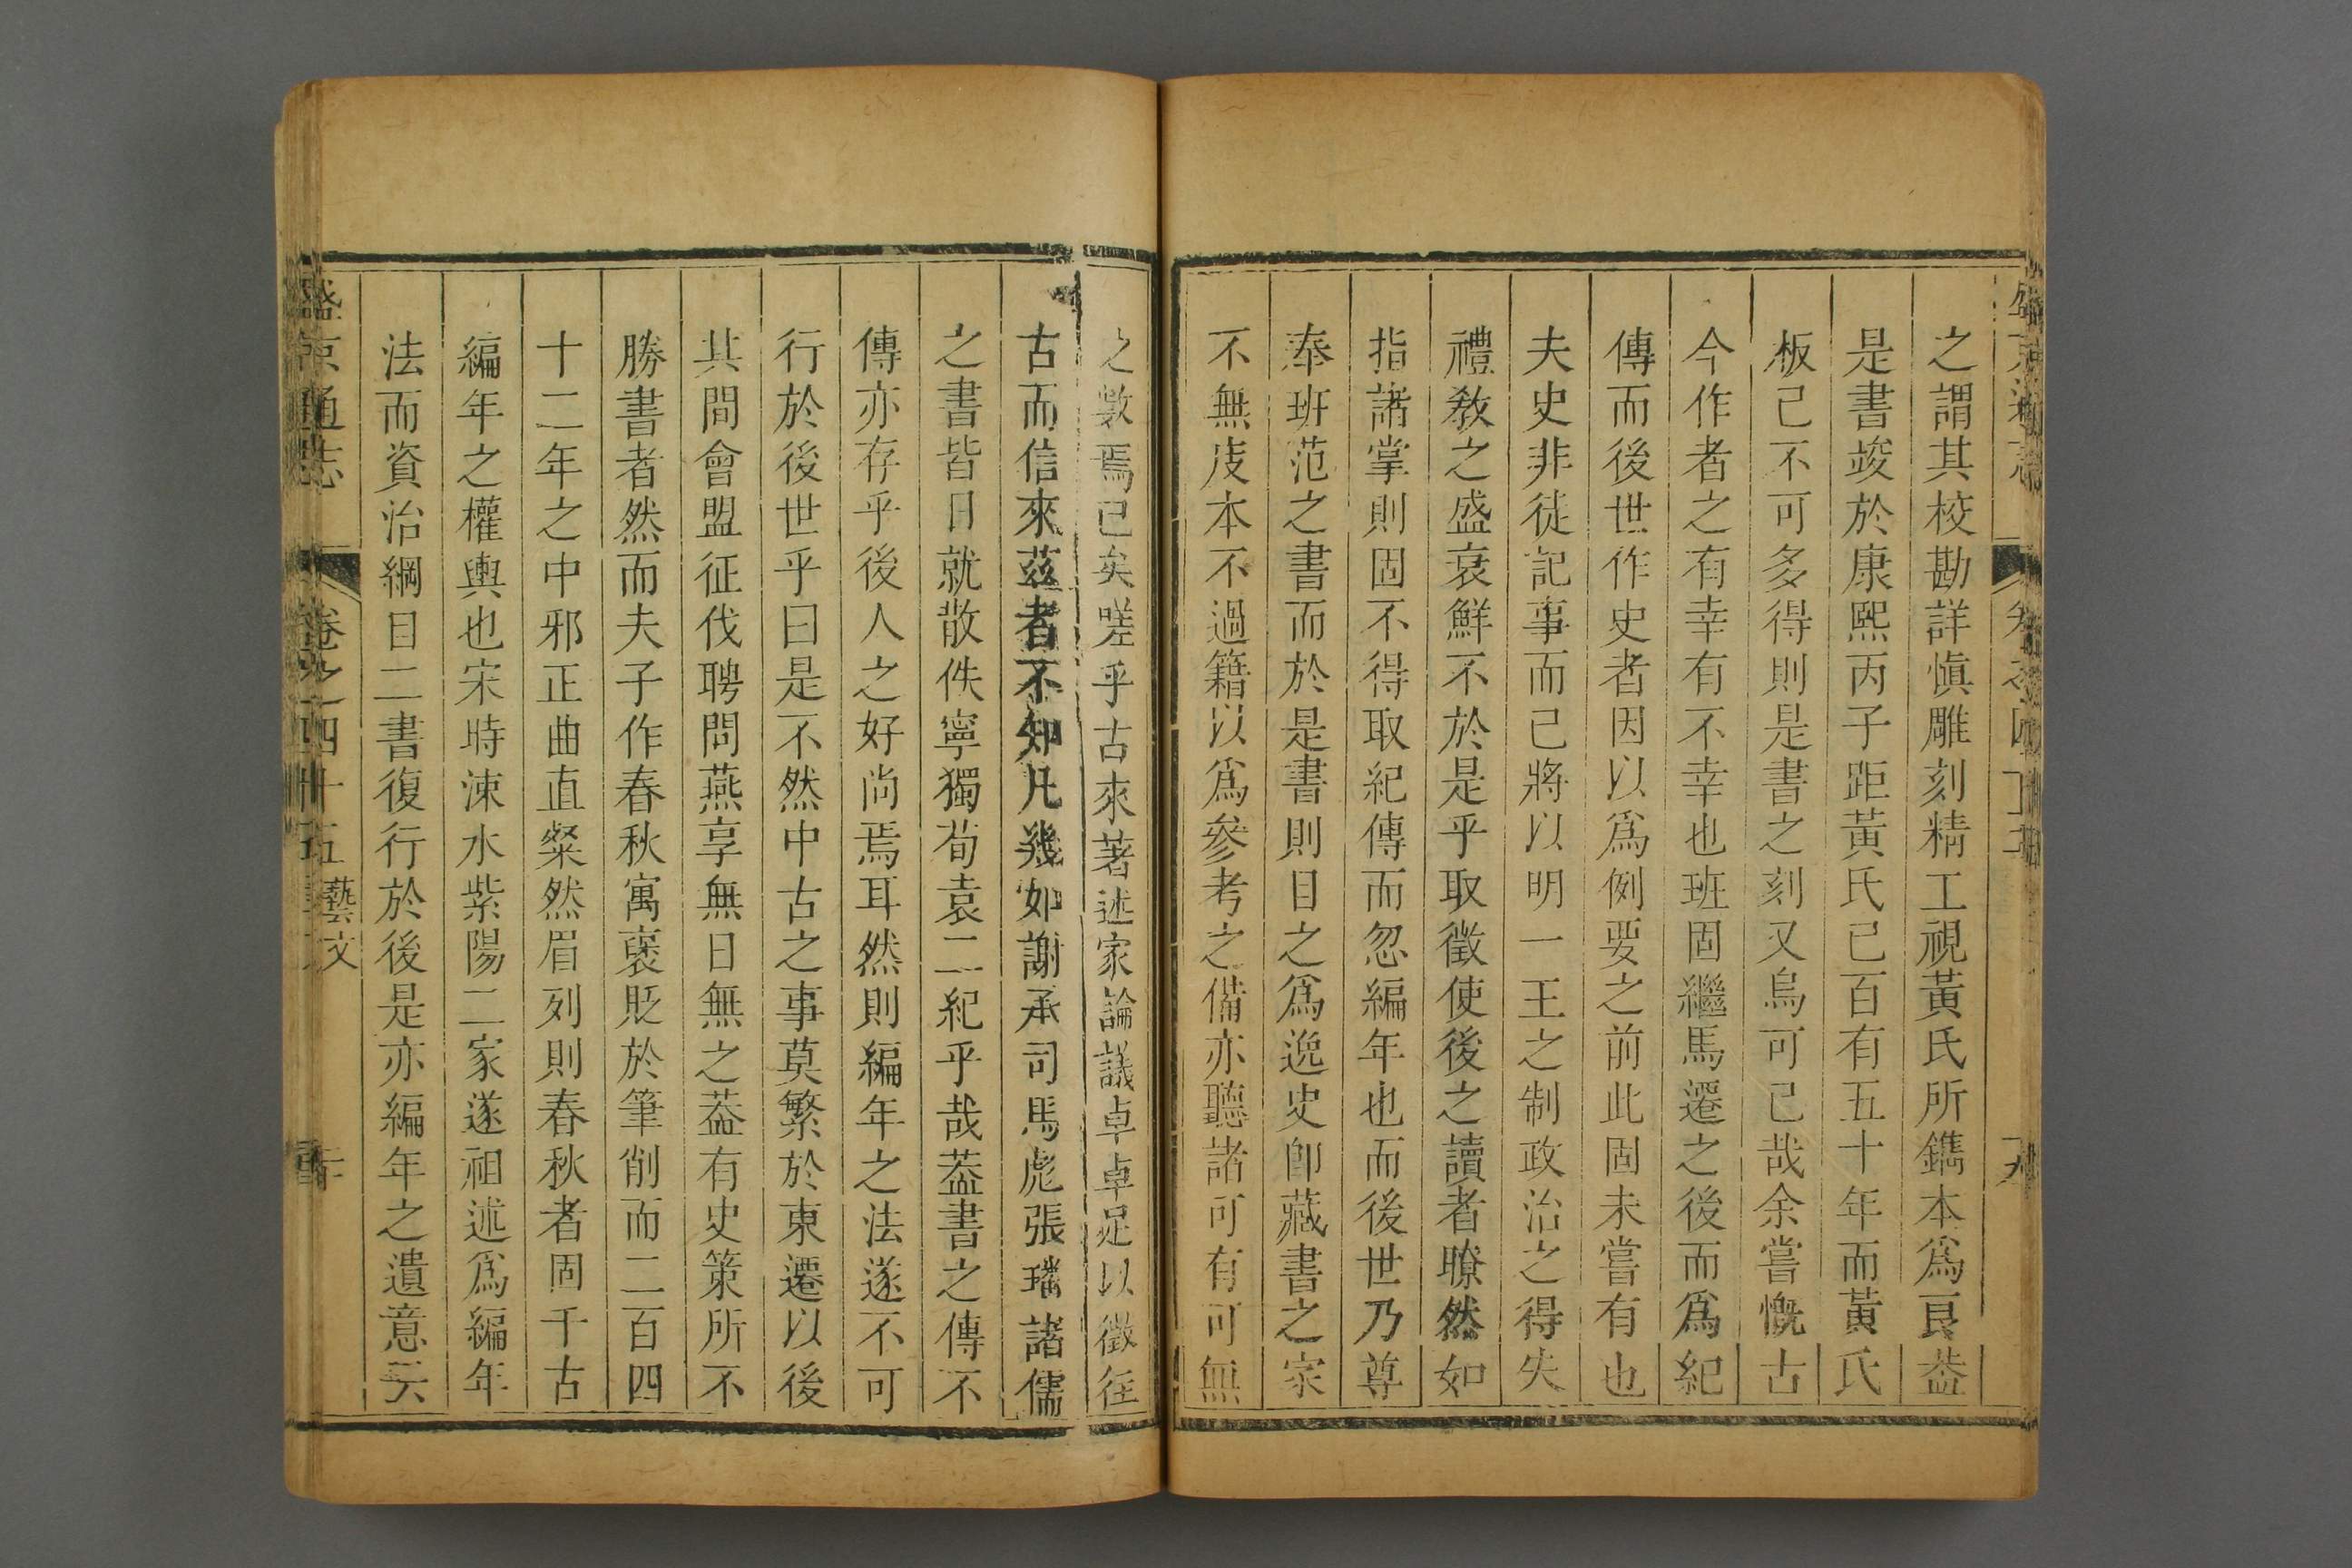 之謂其校勘詳愼雕刻精工視黃氏所鐫本爲良葢
是書竣於康熙丙子距黃氏已百有五十年而黃氏
板已不可多得則是書之刻又烏可已哉余嘗慨古
今作者之有幸有不幸也班固繼馬遷之後而爲紀
傳而後世作史者因以爲例要之前此固未嘗有也
夫史非徒記事而已將以明一王之制政治之得失
禮敎之盛衰鮮不於是乎取徵使後之讀者瞭然如
指諸掌則固不得取紀傳而忽編年也而後世乃尊
奉班范之書而於是書則目之爲逸史卽藏書之家
不無庋本不過籍以爲參考之備亦聽諸可有可無
之數焉已矣嗟乎古來著述家論議卓卓足以徵往
古而信來茲者不知凡幾如謝承司馬彪張璠諸儒
之書皆日就散佚寧獨荀袁二紀乎哉葢書之傳不
傳亦存乎後人之好尚焉耳然則編年之法遂不可
行於後世乎曰是不然中古之事莫繁於東遷以後
其間會盟征伐聘問燕享無日無之葢有史策所不
勝書者然而夫子作春秋寓褒貶於筆削而二百四
十二年之中邪正曲直粲然眉列則春秋者固千古
編年之權輿也宋時涑水紫陽二家遂祖述爲編年
法而資治綱目二書復行於後是亦編年之遺意云
盛京通志 卷之四十五 藝文